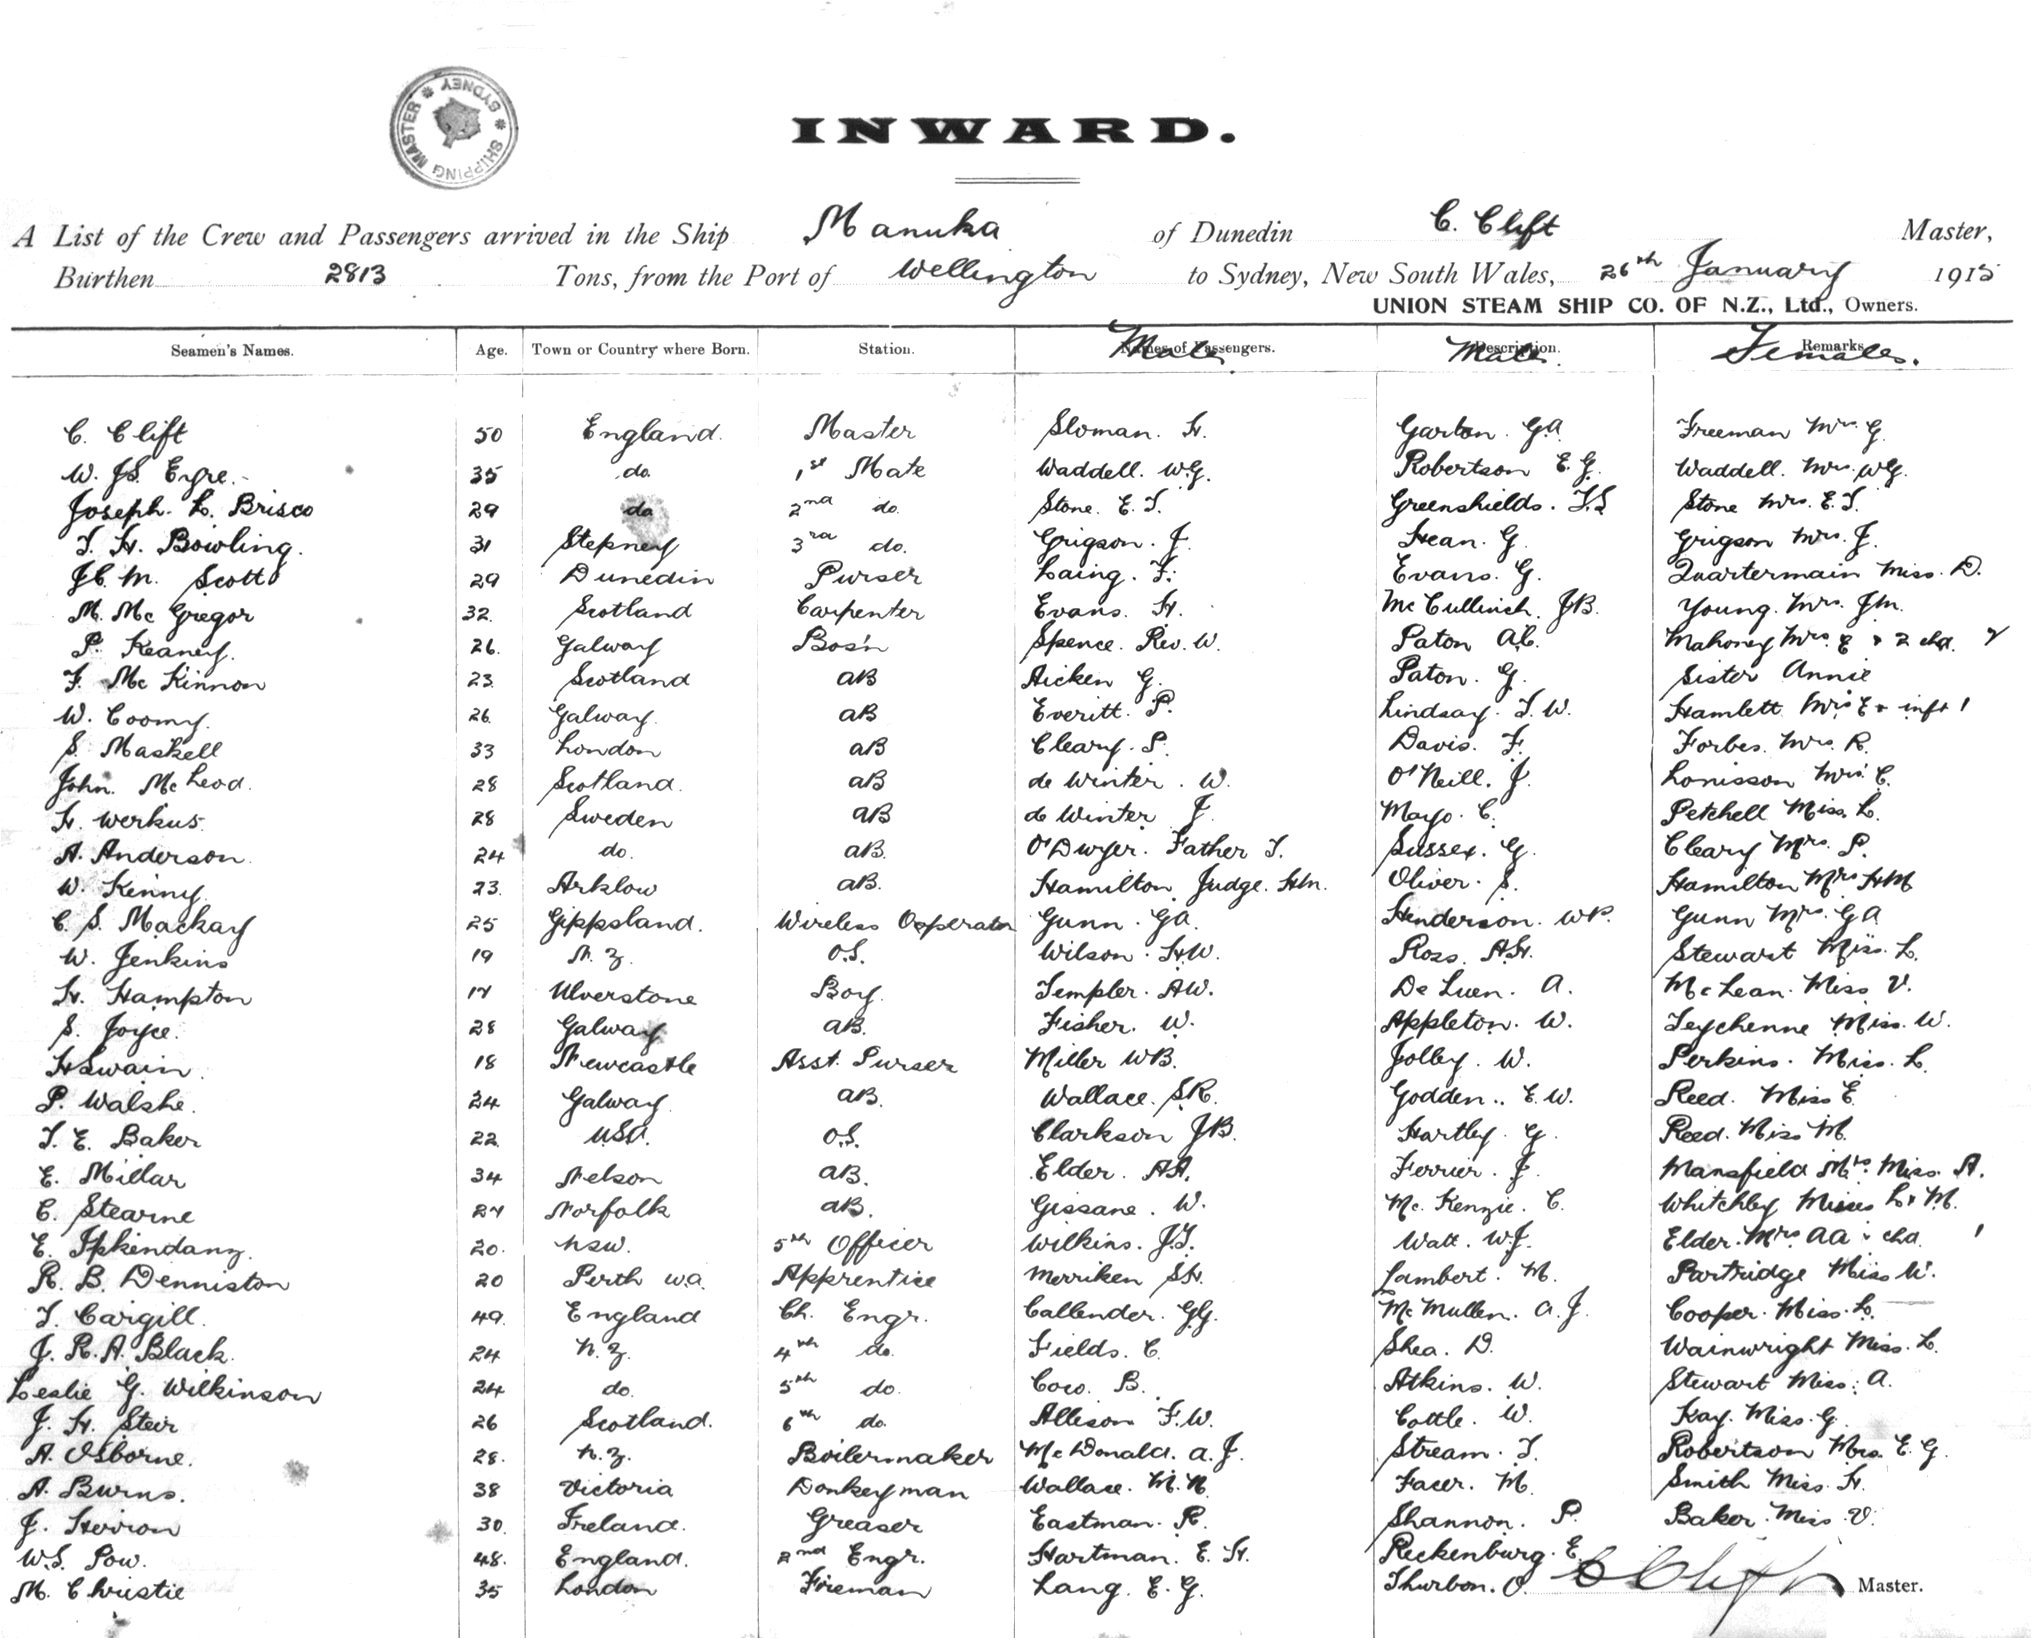 SHIPPING MASTER * SYDNEY *
INWARD.
A List of the Crew and Passengers arrived in the Ship Manuka of Dunedin C. Clift Master,
Burthen 2813 Tons, from the Port of Wellington to Sydney, New South Wales, 26th January 1915
UNION STEAM SHIP CO. OF N.Z., Ltd., Owners.
Seamen's Names. Age. Town or Country where Born. Station. Names of Passengers. Males Description. Males. Remarks Females.
C. Clift 50 England. Master Sloman. H. Garton. G.A. Freeman Mrs. G.
W. Eyre. 35 do. 1st Mate Waddell. W.G. Robertson E.G. Waddell. Mrs. W.G.
Joseph. L. Brisco 29 do 2nd do. Stone. E.T. Greenshields. T.S Stone Mrs. E.T.
T. H. Bowling. 31 Stepney 3rd do. Grigson. J. Hean. G. Grigson Mrs. J.
J.C.M. Scott 29 Dunedin Purser Laing. F. Evans. G. Quartermain Miss. D.
M. McGregor 32. Scotland Carpenter Evans. H. McCullinch. J.B. Young. Mrs. J.M.
P. Keaney. 26. Galway Bos'n Spence. Rev. W. Paton A.C. Mahoney Mrs. E & 2 chd. 2
F. McKinnon 23. Scotland AB Aicken G. Paton. G. Sister Annie
W. Coomy. 26. Galway AB Everitt. P. Lindsay. T.W. Hamlett Mrs E & inft 1
S. Maskell 33 London AB Cleary. P. Davis. F. Forbes. Mrs. R.
John. McLeod. 28 Scotland. AB de Winter. W. O'Neill. J. Lonisson Mrs. C.
H. Werkus. 28 Sweden AB de Winter J. Mayo. C. Petchell Miss. L.
A. Anderson. 24 do. AB. O'Dwyer. Father T. Sussex. G. Cleary Mrs. P.
W. Kenny. 23. Arklow AB. Hamilton Judge. H.M. Oliver. S. Hamilton Mrs HM
C. S. Mackay 25 Gippsland. Wireless Ooperator Gunn. G.A. Henderson. W.P. Gunn Mrs. G A
W. Jenkins 19 N.Z. O.S. Wilson. H.W. Ross. A.H. Stewart Miss. L.
H. Hampton 17 Ulverstone Boy. Templer. A.W. De Luen. A. McLean. Miss V.
S. Joyce. 28 Galway AB. Fisher. W. Appleton. W. Teychenne Miss. W.
H Swain. 18 Newcastle Asst. Purser Miller W.B. Jolley. W. Perkins. Miss. L.
P. Walshe. 24 Galway. AB. Wallace. S.R. Godden.. E.W. Reed. Miss E.
T. E. Baker 22 U.S.A. O.S. Clarkson J.B. Hartley. G. Reed. Miss M.
E. Millar 34 Nelson AB. Elder. A.A. Ferrier. J. Mansfield Mrs. Miss. A.
C. Stearne 27 Norfolk AB. Gissane. W. McKenzie. C. Whitchley Misses L & M.
E. 20. NSW. 5th Officer Wilkins. J.T. Watt. W.J. Elder. Mrs. AA & chd. 1
R. B. Denniston 20 Perth W.A. Apprentice Merriken S.H. Lambert. M. Partridge Miss W.
T. Cargill. 49. England Ch. Engr. Callender. G.G. McMullen. A.J. Cooper. Miss. L.
J. R. A. Black. 24 N.Z. 4th do. Fields. C. Shea. D. Wainwright Miss. L.
Leslie G. Wilkinson 24 do. 5th do. B. Atkins. W. Stewart Miss. A.
J. H. Steir 26 Scotland. 6th do. Allison F.W. Cottle. W. Kay. Miss. G.
A. Osborne. 28. N.Z. Boilermaker McDonald. A.J. Stream. T. Robertson Mrs. E.G.
A. Burns. 38 Victoria Donkeyman Wallace. M.N. Facer. M. Smith Miss. H.
J. Herron 30. Ireland. Greaser Eastman. R. Shannon. P. Baker. Miss V.
W.S. Pow. 48. England. 2nd Engr. Hartman. E. H. Reckenburg. E.
M. Christie 35 London Fireman Lang. E. G. Thurbon. O. C Clift Master.